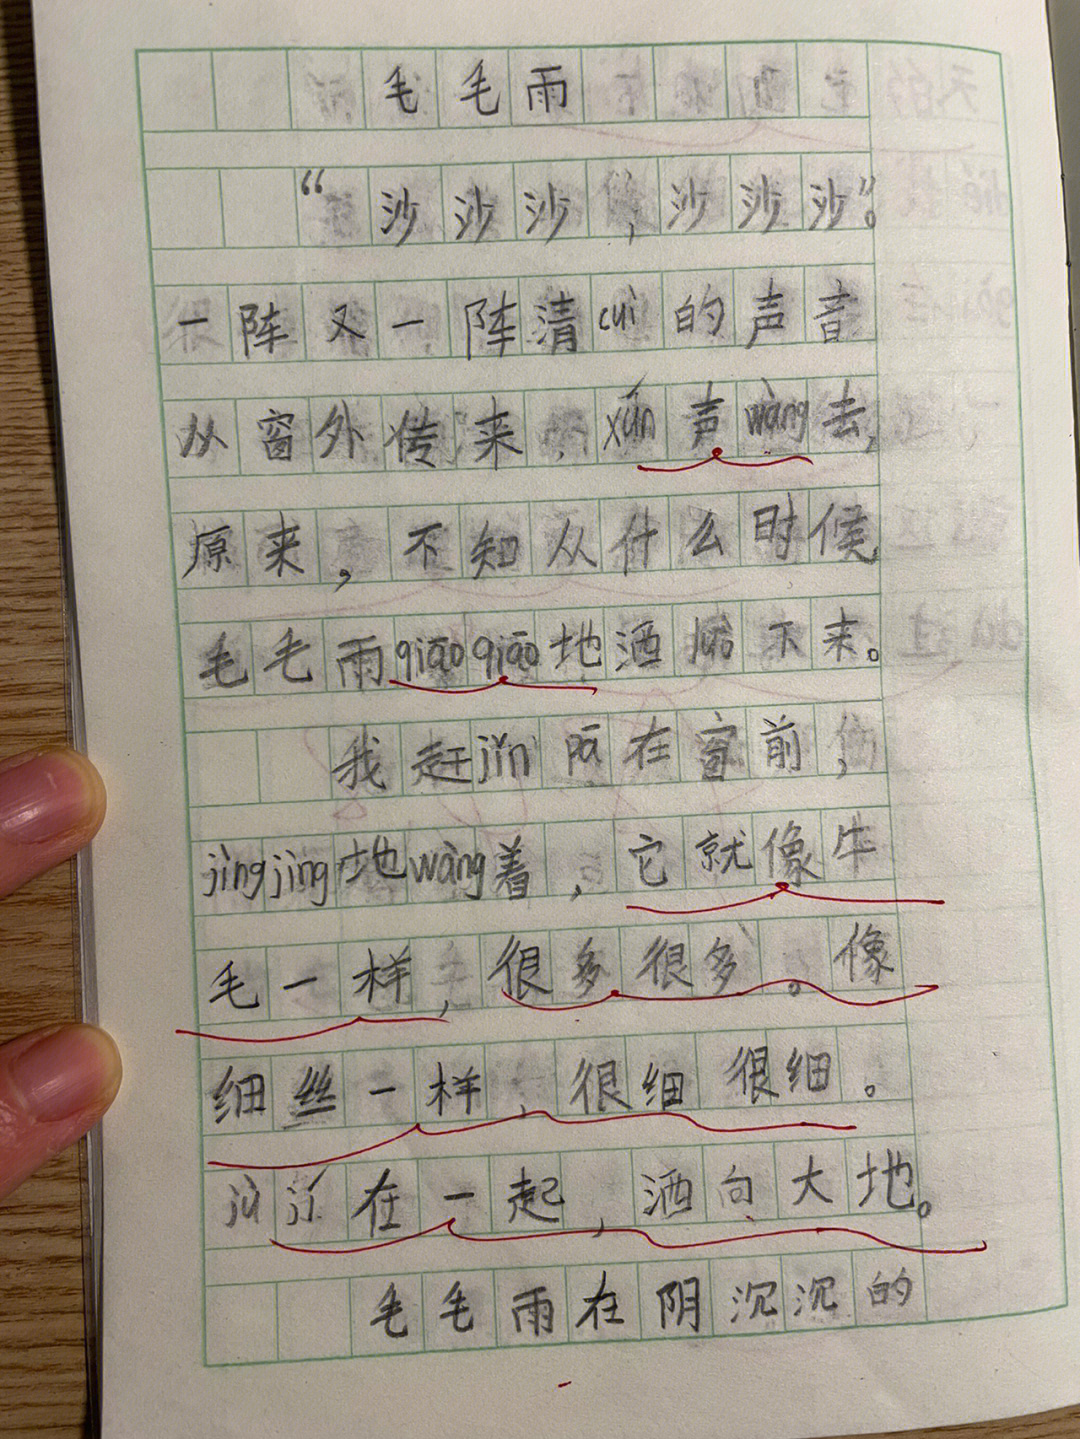 毛毛雨
“沙沙沙，沙沙沙”。
一阵又一阵清cuì的声音
从窗外传来，xún声wàng去，
原来，不知从什么时候
毛毛雨qiāoqiāo地洒luò下来。
我赶jǐn pā在窗前，
jìngjìng地wàng着，它就像牛
毛一样，很多很多。像
细丝一样，很细很细。
在一起，洒向大地。
毛毛雨在阴沉沉的